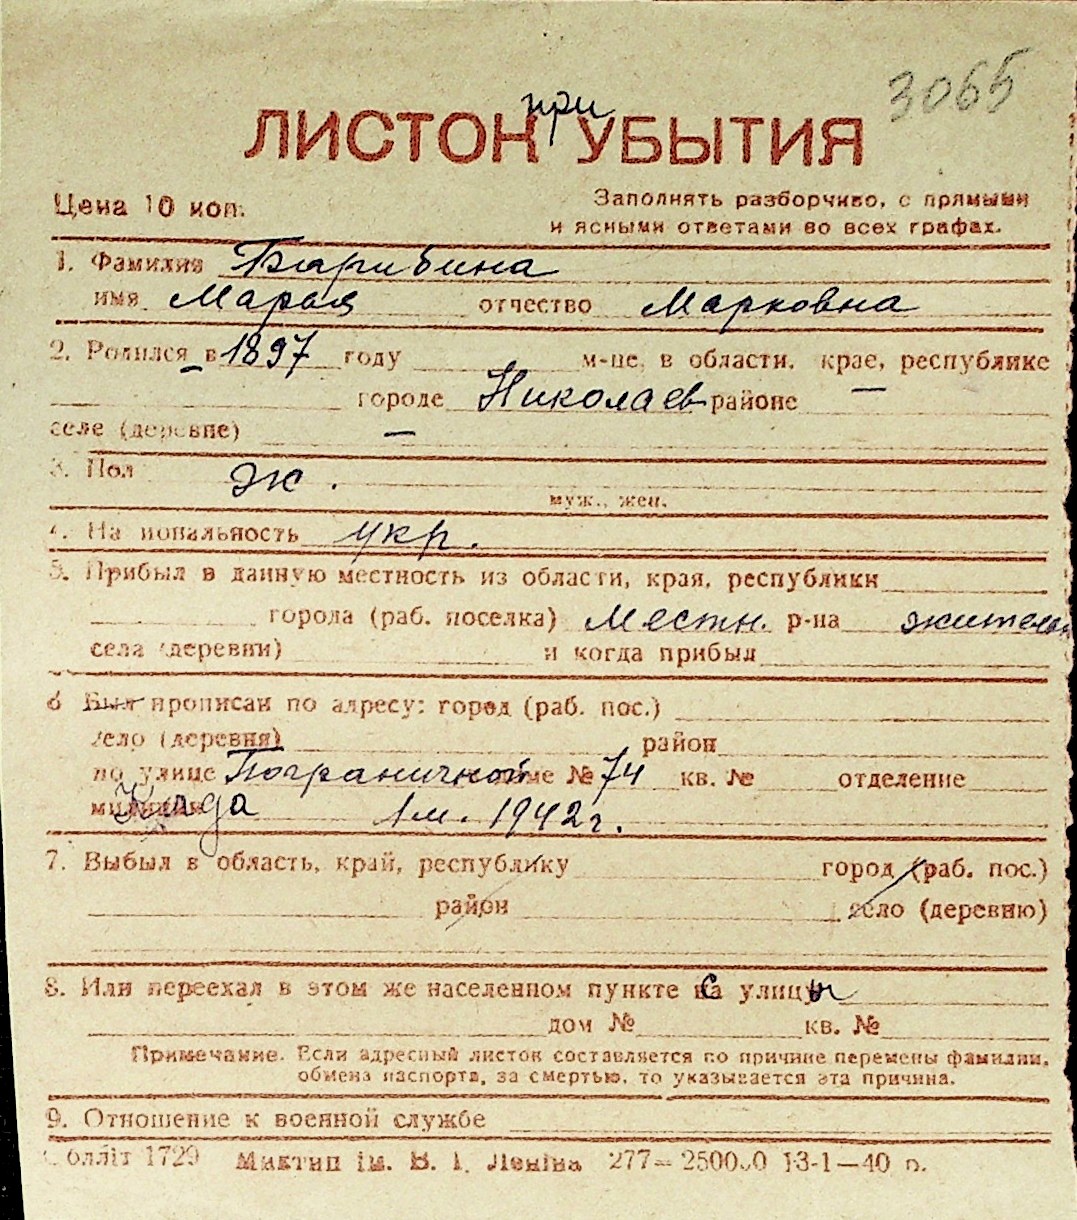 3065
при
ЛИСТОК УБЫТИЯ
Цена 10 коп.
Заполнять разборчиво, с прямыми
и ясными ответами во всех графах.
1. Фамилия
имя Марья отчество Марковна
2. Родился в 1897 году м-це, в области, крае, республике
городе Николаев районе —
селе (деревне) —
3. Пол ж.
муж., жен.
4. Национальность укр.
5. Прибыл в данную местность из области, края, республики
города (раб. поселка) Местн. р-на житель
села (деревни) и когда прибыл
6 Был прописан по адресу: город (раб. пос.)
село (деревня) район
по улице Пограничной доме № 74 кв. № отделение
милиции 1м. 1942 г.
7. Выбыл в область, край, республику город (раб. пос.)
район село (деревню)
8. Или переехал в этом же населенном пункте с улицы
дом № кв. №
Примечание. Если адресный листок составляется по причине перемены фамилии,
обмена паспорта, за смертью, то указывается эта причина.
9. Отношение к военной службе
Обллiт 1729 Миктип iм. В. I. Ленiна 277— 250000 13-1—40 р.